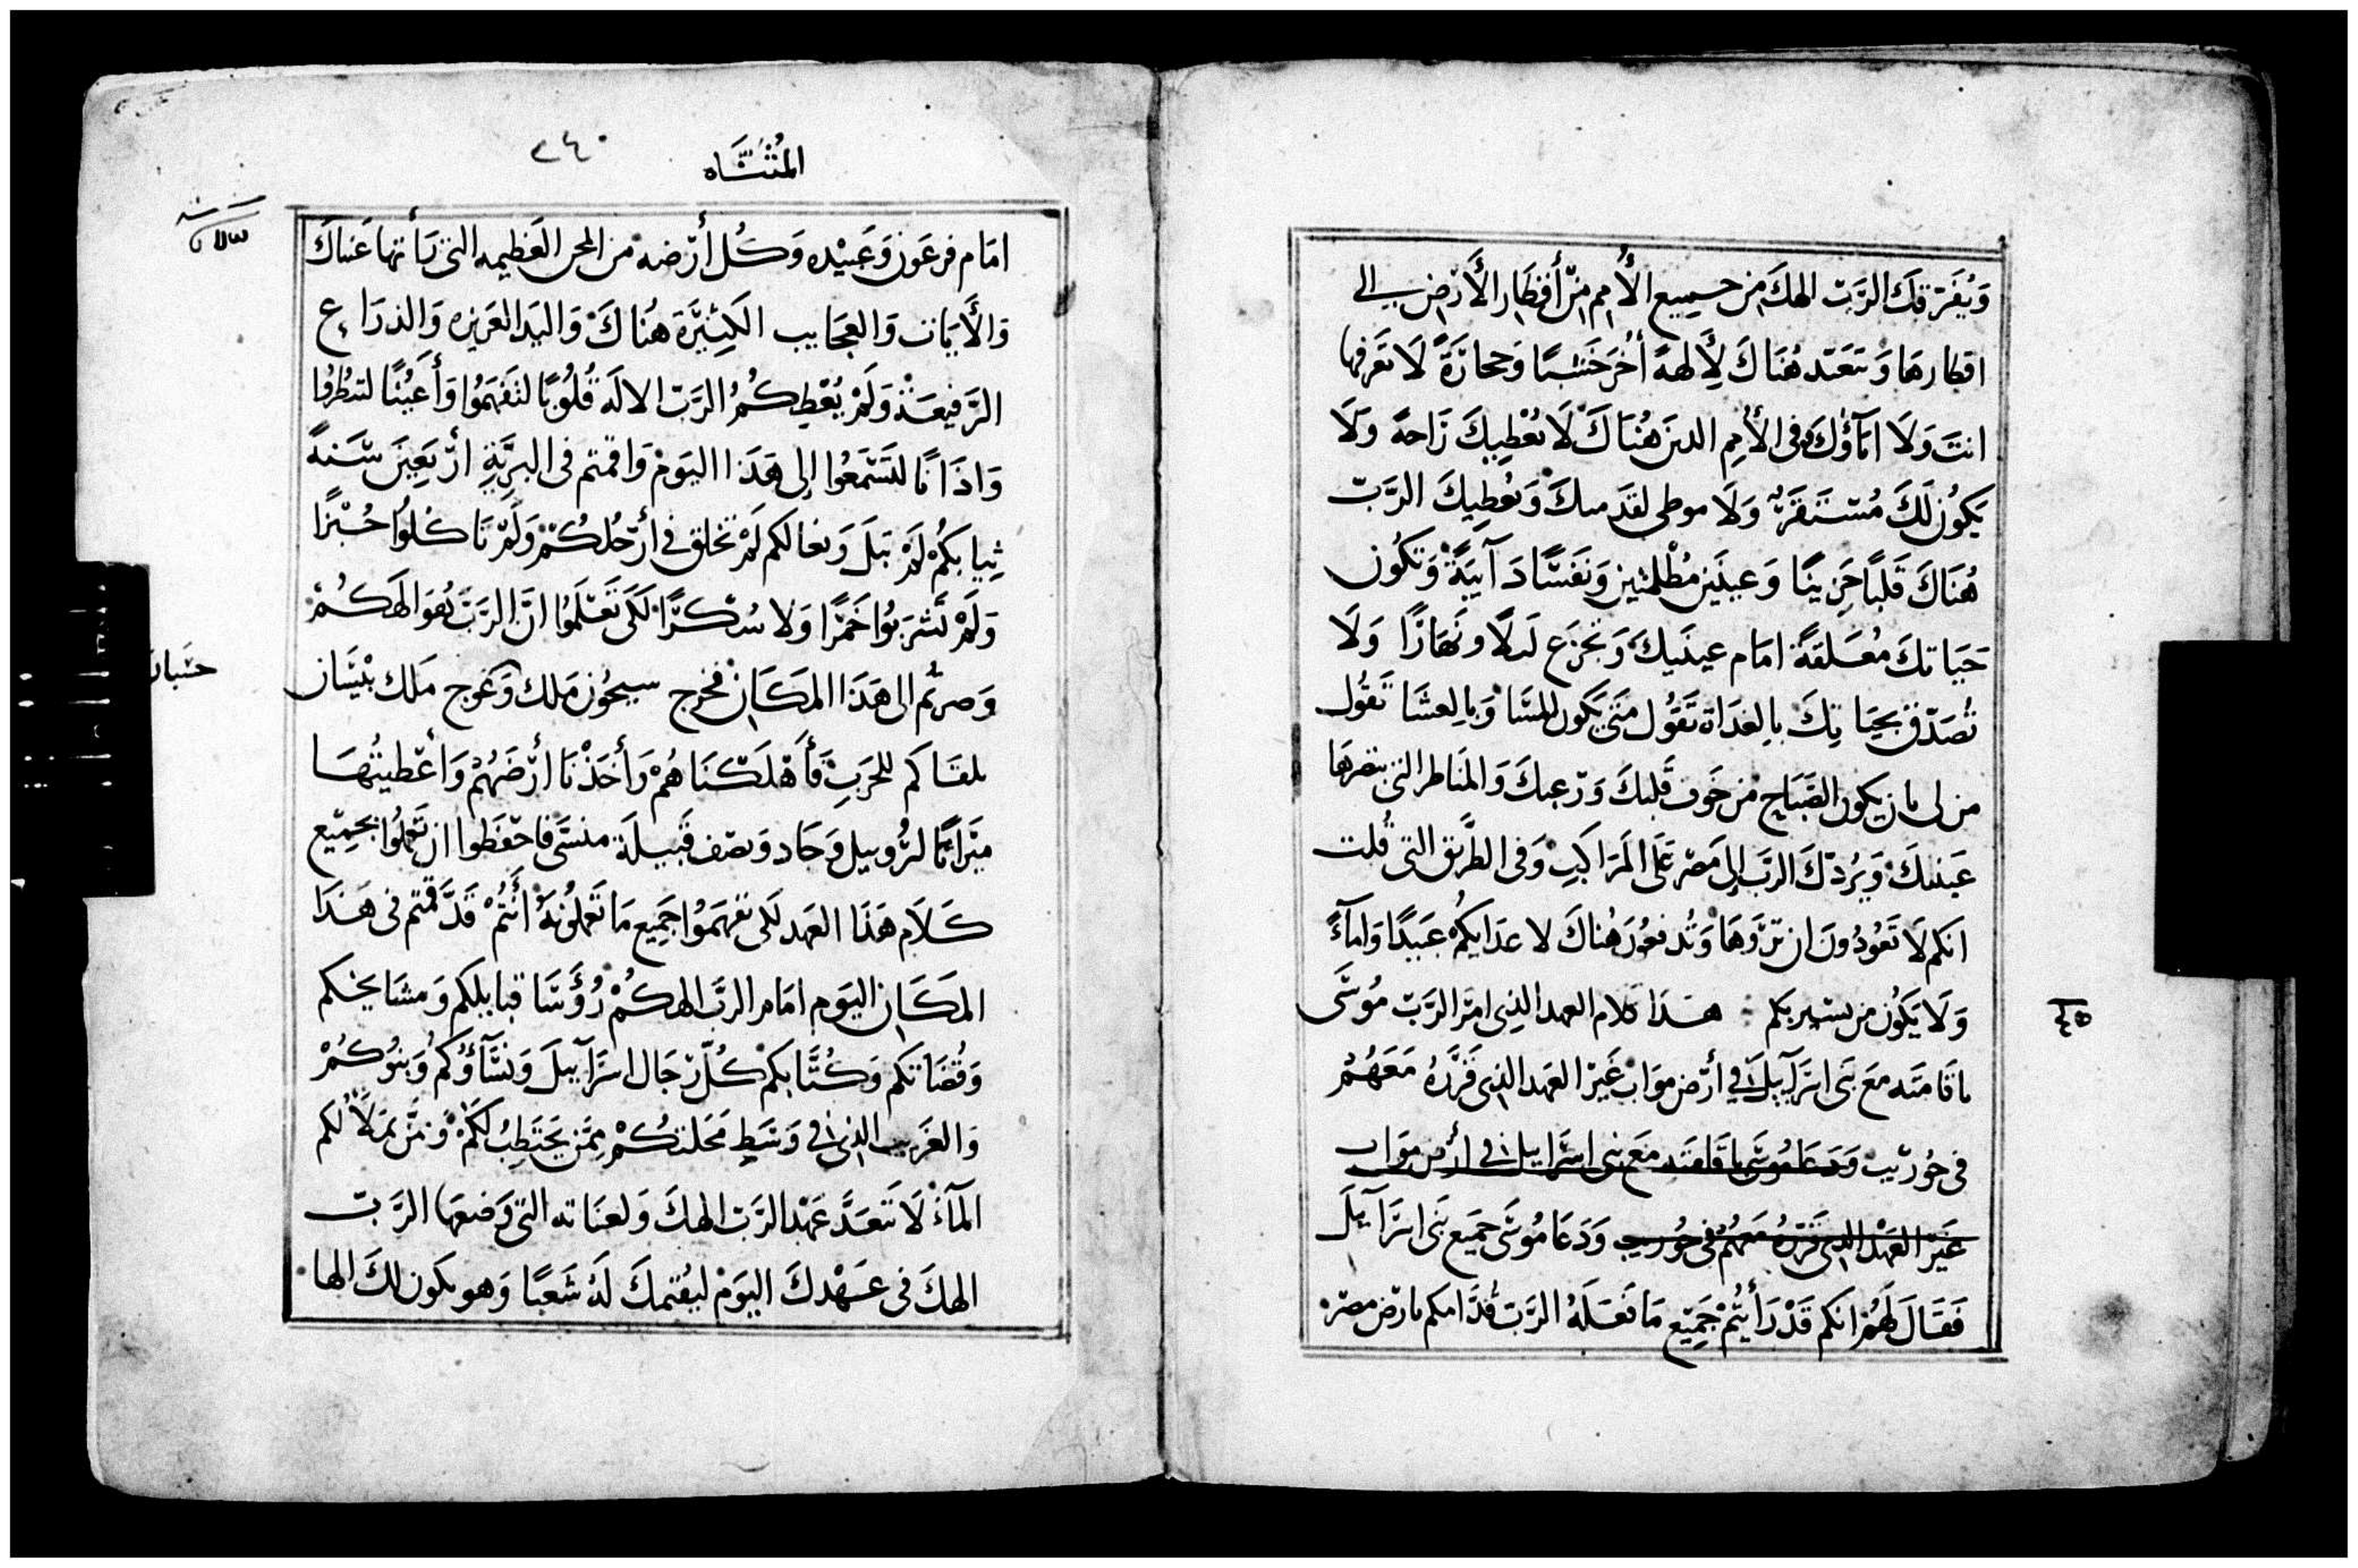 وَيُفَرّقكَ الرَّبّ الهكَ من جميع الأُمم مِنْ أَقطَار الأَرْض الي
اقطارهَا وَتتعَبّد هُنَاكَ لِأَلهةً أُخَر خَشبًا وَحجارَةً لَا تعَرفها
انتَ وَلَا ابَآؤُكَ وفى الأُمم الدين هُنَاكَ لَا يُعْطِيكَ رَاحةً وَلَا
يَكُون لَكَ مُسْتَقَرّ وَلَا موطى لقدَميكَ وَيُعطِيكَ الرَّبّ
هُنَاكَ قَلبًا حَزِينًا وَعينَين مُظْلمتين وَنَفَسًا دَآيبَةً وَتكُون
حَيَاتكَ مُعَلقةً امَام عينَيكَ وَتجزَع لَيلًا ونَهَارًا وَلَا
تُصَدّق بحيَاتِكَ بالغدَاة تَقَوُل مَتى يَكون المسَا وَبالعشَا تَقوُل
من لى بان يكون الصَّبَاح من خَوف قَلبكَ وَرّعبكَ وَالمنَاظر التى بتصرهَا
عَينيكَ وَيَرُدّكَ الرَبّ إلى مَصْر عَلَى المرَاكبِ وَفى الطَّريق التى قُلت
انكم لَا تَعُودُونَ ان تَرّوهَا وَتُدفعُونَ هُناكَ لاعدَايكُم عَبيدًا وَامآءً
وَلَا يَكُون من يستَريكم هذا كلام العهد الذِى امر الرَّبّ مُوسَى
باقامَته مَعَ بَنى اسرَآييل فى أرْض موَاب غَير العَهد الذى قَرَّرهُ مَعَهُمْ
فى حُوريب وَدَعَا مُوسَى باقامَته مَع بنى اسرَاييل فى أرْض موَاب
غَيَر العَهْد الذى قَرّرهُ مَعَهُمْ فى حُوريب وَدَعَا مُوسَى جَميَع بَنى اسرَآييلَ
فَقَالَ لَهُمْ انَكم قَدْ رَأَيتُمْ جَمِيَع مَا فَعَلَهُ الرَّبّ قُدَّامكم بارْض مصْر
المُثنَّاه
٢٤٠
امَام فرعَون وَعَبيْده وَكُل أَرْضه من المحن العَظيمه التى رَأتها عَيناكَ
وَالأَيَات وَالعجَايب الكَثِيرَة هنُاكَ وَاليَد العَزيزه وَالذرَاع
الرَّفيعَة وَلَمْ يُعْطِكُمُ الرَّبّ الالَه قُلوُبًا لتَفهَمُوا وَأَعيُنًا لتنظُروا
وَاذَانًا لتَسْمَعُوا إلى هَذَا اليَومْ وَاقمتم فى البرِّيَّةِ ارْبَعِينَ سَنَةً
ثِيابكُمْ لَمْ تَبلَ وَنعالكم لَمْ تخلق في أرْجُلكُمْ وَلَمْ تَاكلُوا خُبْزًا
وَلَمْ تَشرَبُوا خَمرًا وَلا سُكرًا لكَى تَعْلَمُوا انَّ الرَّبَّ هُوَ الهَكُمْ
وَصرتُم الى هَذَا المكَان فخرج سيحُون مَلك وَعَوج مَلك بيْسَان
حسَبان
بلقَاكم للحَربِ فَأَهْلَكنَاهُمْ وَأَخَذْنَا أرْضَهُمْ وَأَعْطيتُهَا
ميرَاثًا لرُوبيل وَجَاد وَنصْف قَبيلَة منسَى فاحْفظوا ان تَعملُوا بجميع
كَلَام هَذَا العَهد لكى تفهَمَوُا جَميع مَا تَعملوُنهُ أَنتُمْ قَدّ قمتم فى هَذَا
المكَان اليوَم امَام الرَّبّ الهكُمْ رُؤَسَا قبايلكم وَمشَايخكم
وَقُضَاتكم وَكُتَّابكم كُلّ رجَال اسرَآييلَ وَنسَآؤكُم وَبنوُكُمْ
وَالغَريب الذى فى وَسَط مَحَلتكُمْ ممَن يَحتَطِبُ لكُمْ وَممَّن يَملَاُ لكم
المآءْ لَا تَتعَدَّ عَهْد الرَّبّ الهكَ وَلعنَاته التى وَضعهَا الرَّبّ
الهكَ فى عَهْدكَ اليوَم ليُقيمكَ لَهُ شَعبًا وَهو يكَون لكَ الها